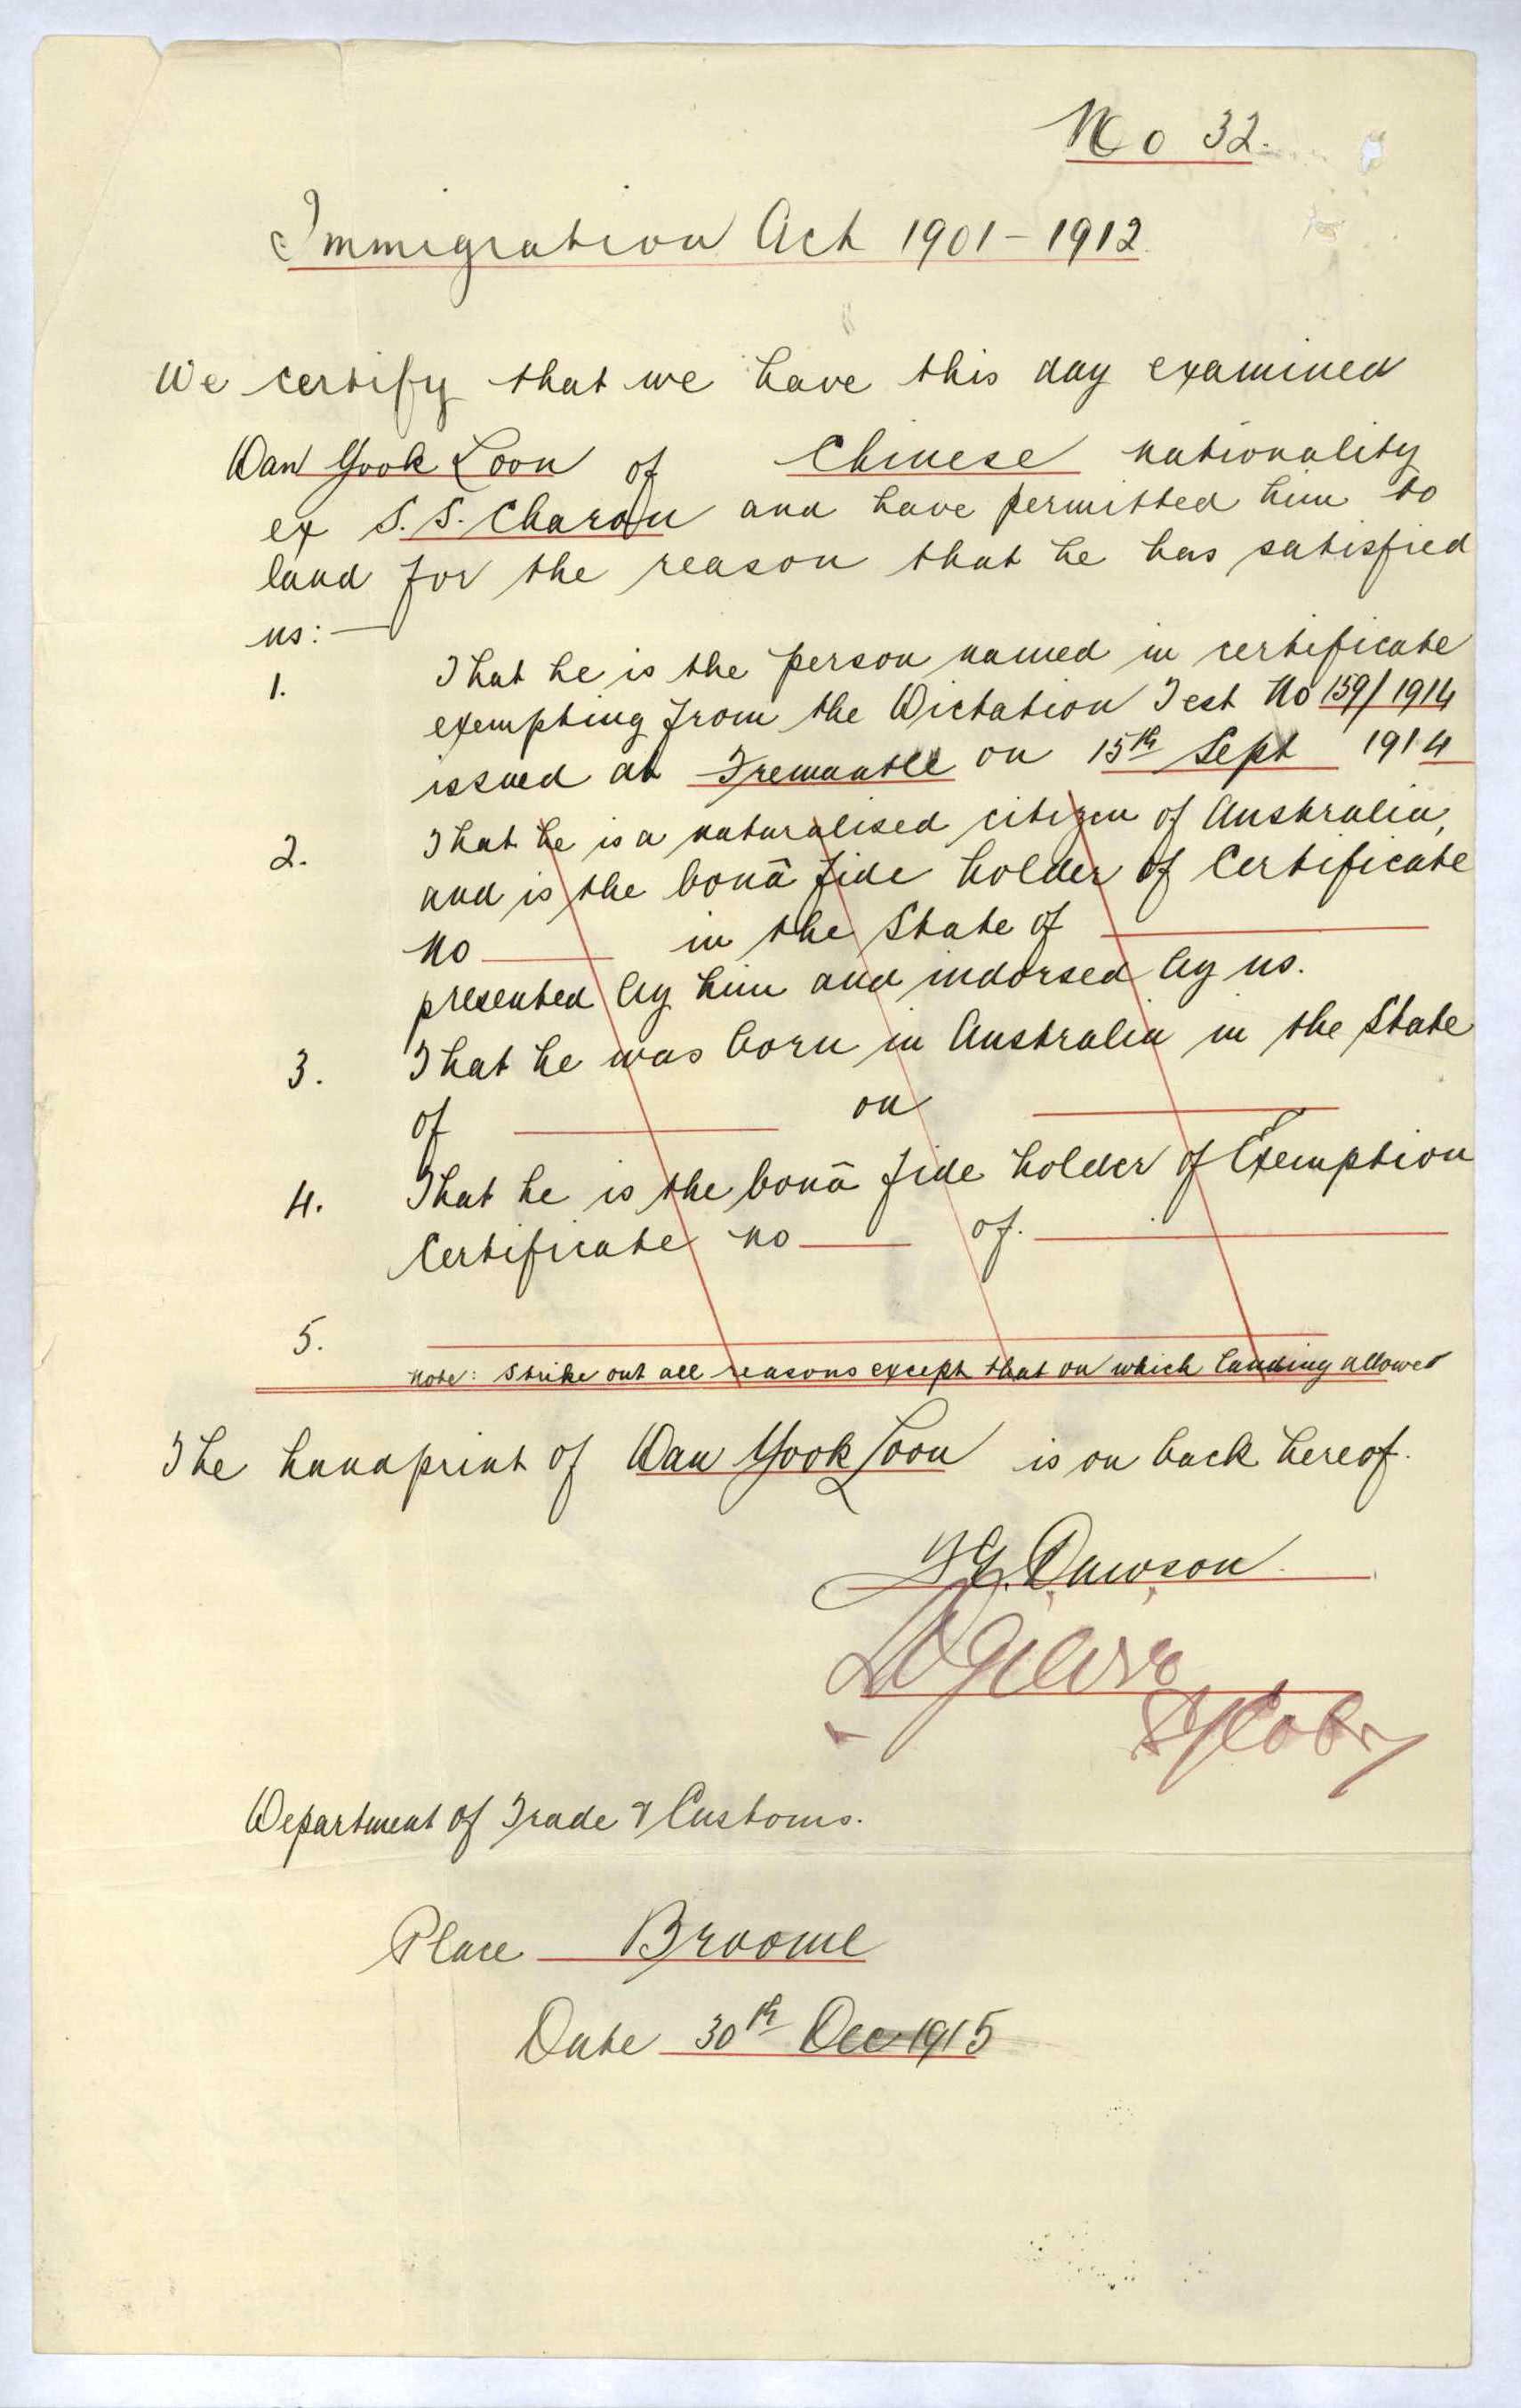 No 32.
Immigration Act 1901 - 1912
We certify that we have this day examined
Wan Yook Loon of Chinese nationality
ex S.S. Charon and have permitted him to
land for the reason that he has satisfied
us: —
1. That he is the person named in certificate
exempting from the Dictation Test No 159/1914
issued at Fremantle on 15th Sept 1914
2. That he is a naturalised citizen of Australia,
and is the bonâ fide holder of Certificate
No in the State of
presented by him and indorsed by us.
3. That he was born in Australia in the State
of on
4. That he is the bonâ fide holder of Exemption
Certificate no of.
5.
Note: Strike out all reasons except that on which landing allowed
The handprint of Wan Yook Loon is on back hereof.
Dawson
Department of Trade & Customs.
Place Broome
Date 30th Dec 1915